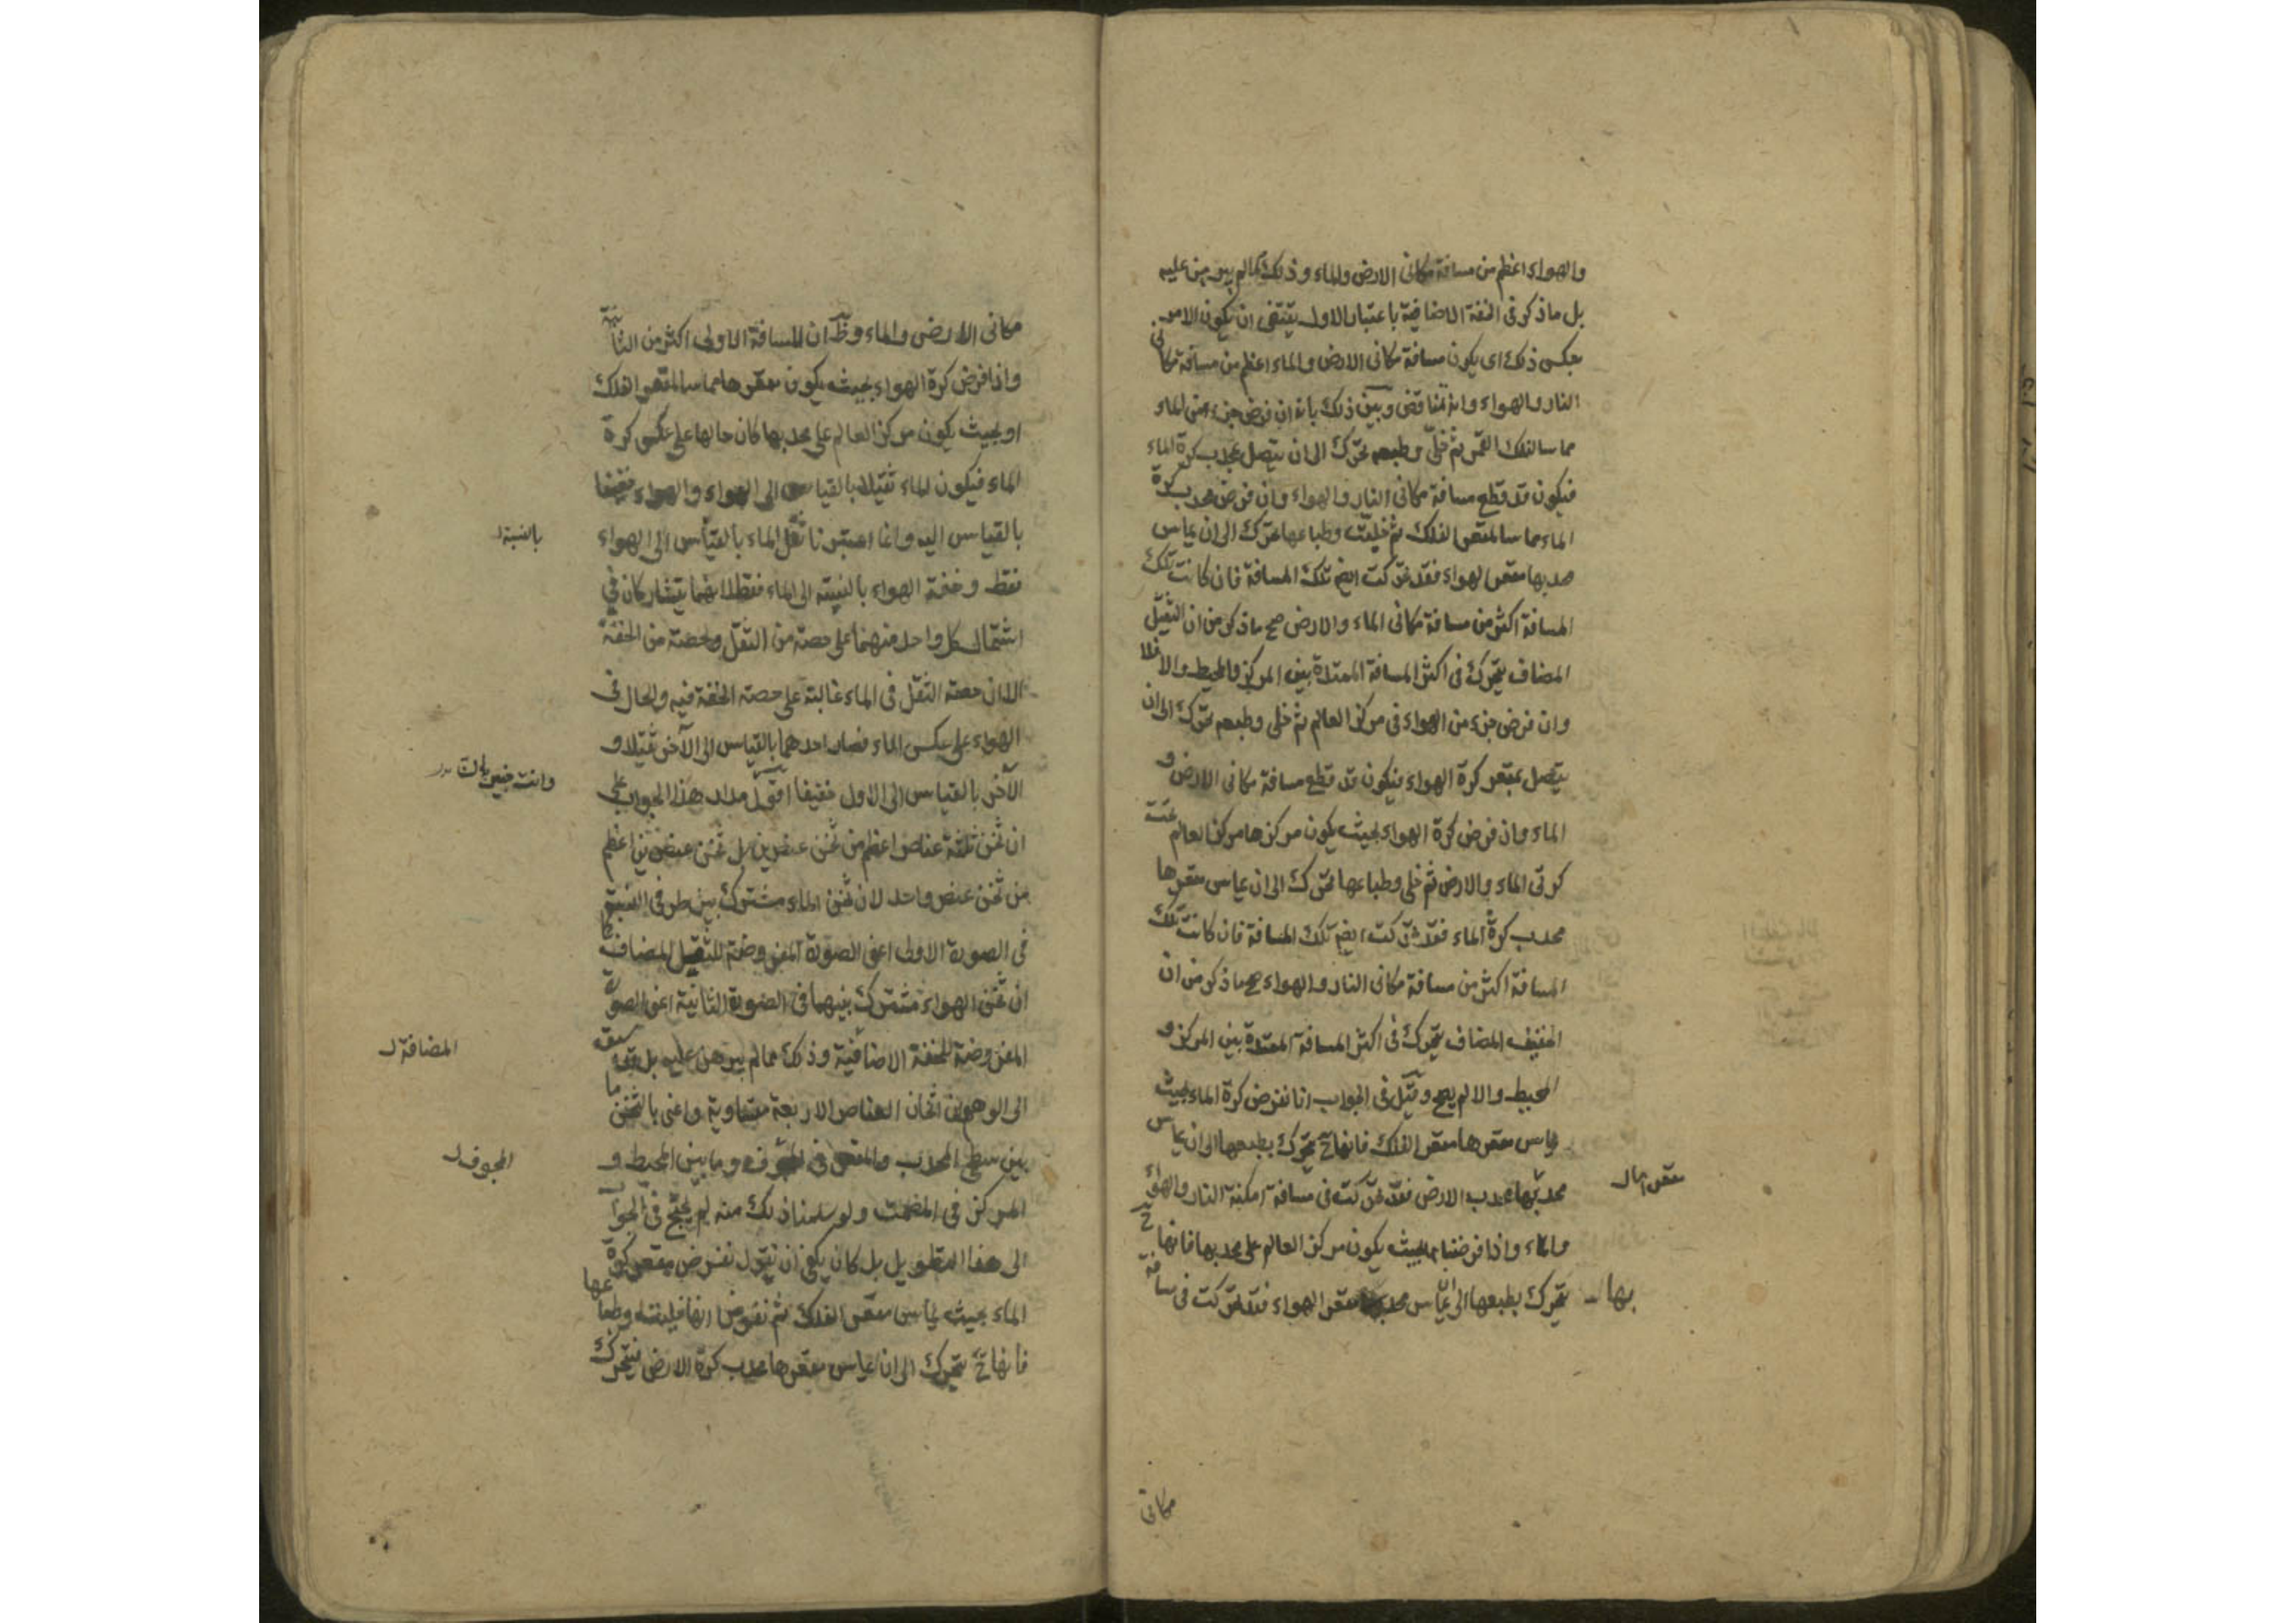 والهواء اعظم من مسافة مكانى الارض والماء وذلك مما لم يبرهن عليه
بل ما ذكر فى الخفة الاضافية باعتبار الاول يقتضى ان يكون الامر
بعكس ذلك اى يكون مسافة مكانى الارض والماء اعظم من مسافة مكانى
النار والهواء وانه تناقض وبين ذلك بانه ان فرض جزء من الماء
مماسا لفلك القمر ثم خلى وطبعه تحرك الى ان يتصل بمحدب كرة الماء
فيكون قد قطع مسافة مكانى النار والهواء وان فرض محدب كرة
الماء مماسا لمقعر الفلك ثم خليت وطباعها تحرك الى ان يماس
محدبها مقعر الهواء فقد تحركت ايضا تلك المسافة فان كانت تلك
المسافة اكثر من مسافة مكانى الماء والارض صح ما ذكر من ان الثقيل
المضاف يتحرك فى اكثر المسافة الممتدة بين المركز والمحيط والا فلا
وان فرض جزء من الهواء فى مركز العالم ثم خلى وطبعه تحرك الى ان
يتصل بمقعر كرة الهواء فيكون قد قطع مسافة مكانى الارض و
الماء وان فرض كرة الهواء بحيث يكون مركزها مركز العالم تحت
كرتى الماء والارض ثم خلى وطباعها تحرك الى ان يماس مقعرها
محدب كرة الماء فقد تحركت ايضا تلك المسافة فان كانت تلك
المسافة اكثر من مسافة مكانى النار والهواء صح ما ذكر من ان
الخفيف المضاف يتحرك فى اكثر المسافة الممتدة بين المركز و
المحيط والا لم يصح وقيل فى الجواب انا نفرض كرة الماء بحيث
يماس مقعرها مقعر الفلك فانها ح تتحرك بطبعها الى ان يماس
محدبها محدب الارض فقد تحركت فى مسافة امكنة النار والهواء
مقعرها
والماء واذا فرضناها بحيث يكون مركز العالم على محدبها فانها ح
تتحرك بطبعها الى ان يماس محدبها مقعر الهواء فقد تحركت فى مسافة
بها
مكانى
مكانى الارض والماء وظ ان المسافة الاولى اكثر من الثانية
واذا فرض كرة الهواء بحيث يكون مقعرها مماسا لمقعر الفلك
او بحيث يكون مركز العالم على محدبها كان حالها على عكس كرة
الماء فيكون الماء ثقيلا بالقياس الى الهواء والهواء خفيفا
بالقياس اليه وانما اعتبرنا ثقل الماء بالقياس الى الهواء
بالنسبة
فقط وخفة الهواء بالنسبة الى الماء فقط لانهما يتشاركان فى
اشتمال كل واحد منهما على حصة من الثقل وحصة من الخفة
الا ان حصة الثقل فى الماء غالبة على حصة الخفة فيه والحال فى
الهواء على عكس الماء فصار احدهما بالقياس الى الآخر ثقيلا و
الآخر بالقياس الى الاول خفيفا اقول مدار هذا الجواب على
وانت خبير بان
ان ثخن ثلثة عناصر اعظم من ثخن عنصرين بل ثخن عنصرين اعظم
من ثخن عنصر واحد لان ثخن الماء مشترك بين طرفى النسبة
فى الصورة الاولى اعنى الصورة المفروضة للثقيل المضاف كما
ان ثخن الهواء مشترك بينهما فى الصورة الثانية اعنى الصورة
المفروضة للخفة الاضافية وذلك مما لم يبرهن عليه بل سبق
المضافة
الى الوهم ان اثخان العناصر الاربعة متساوية واعنى بالثخن ما
بين سطح المحدب والمقعر فى المجوف وما بين المحيط و
المجوف
المركز فى المصمت ولو سلمنا ذلك منه لم يحتج فى الجواب
الى هذا التطويل بل كان يكفى ان نقول نفرض مقعر كرة
الماء بحيث يماس مقعر الفلك ثم نفرض انها خليت وطباعها
فانها ح تتحرك الى ان يماس مقعرها محدب كرة الارض فيتحرك